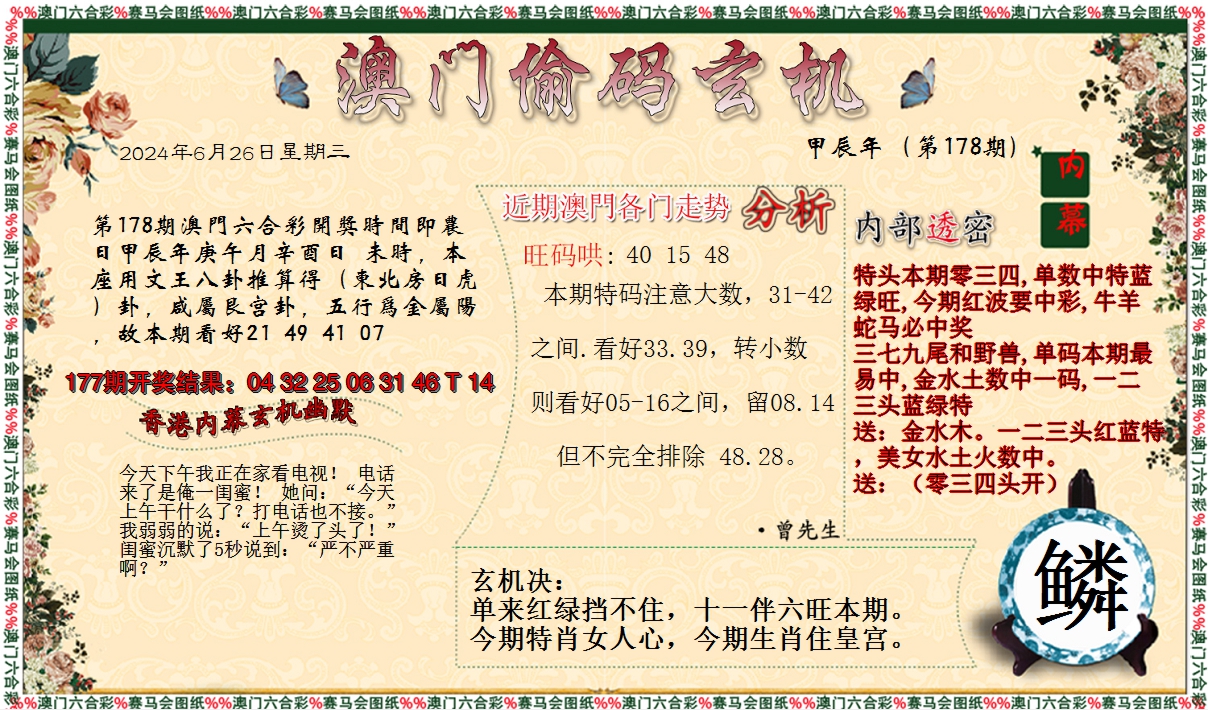 %%澳门六合彩%赛马会图纸%%澳门六合彩%赛马会图纸%%澳门六合彩%赛马会图纸%%澳门六合彩%赛马会图纸%%澳门六合彩%赛马会图纸%%澳门六合彩%赛马会图纸%%
澳门偷码玄机
2024年6月26日星期三
甲辰年 (第178期)
第178期澳門六合彩開獎時間即農
日甲辰年庚午月辛酉日 未時，本
座用文王八卦推算得（東北房日虎
）卦，咸屬艮宫卦，五行爲金屬陽
，故本期看好21 49 41 07
177期开奖结果：04 32 25 06 31 46 T 14
香港内幕玄机幽默
今天下午我正在家看电视！ 电话
来了是俺一闺蜜！ 她问：“今天
上午干什么了？打电话也不接。”
我弱弱的说：“上午烫了头了！”
闺蜜沉默了5秒说到：“严不严重
啊？”
近期澳門各门走势 分析
旺码哄: 40 15 48
本期特码注意大数，31-42
之间.看好33.39，转小数
则看好05-16之间，留08.14
但不完全排除 48.28。
·曾先生
玄机决：
单来红绿挡不住，十一伴六旺本期。
今期特肖女人心，今期生肖住皇宫。
内幕
内部透密
特头本期零三四,单数中特蓝
绿旺,今期红波要中彩,牛羊
蛇马必中奖
三七九尾和野兽,单码本期最
易中,金水土数中一码,一二
三头蓝绿特
送：金水木。一二三头红蓝特
，美女水土火数中。
送：（零三四头开）
鳞
%%澳门六合彩%赛马会图纸%%澳门六合彩%赛马会图纸%%澳门六合彩%赛马会图纸%%澳门六合彩%赛马会图纸%%澳门六合彩%赛马会图纸%%澳门六合彩%赛马会图纸%%